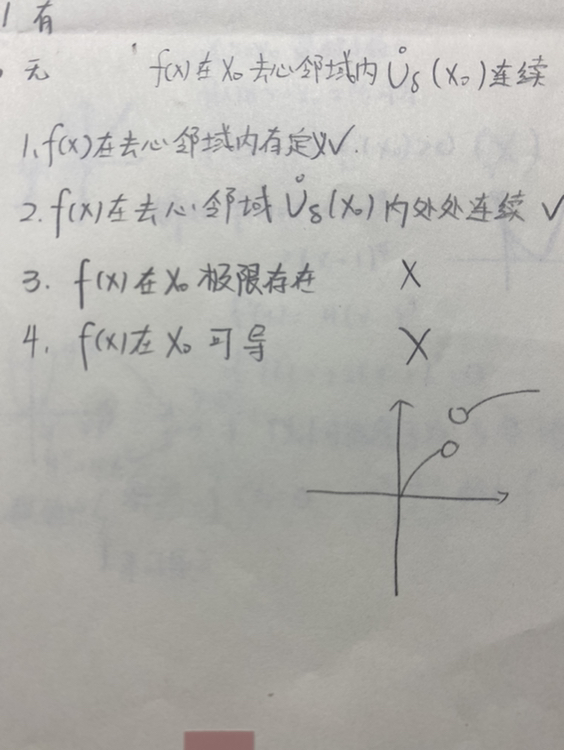 1 有
无 f(x)在x₀去心邻域内Ů_δ(x₀)连续
1. f(x)在去心邻域内有定义✓.
2. f(x)在去心邻域 Ů_δ(x₀)内处处连续 ✓
3. f(x)在x₀极限存在 ×
4. f(x)在x₀可导 ×